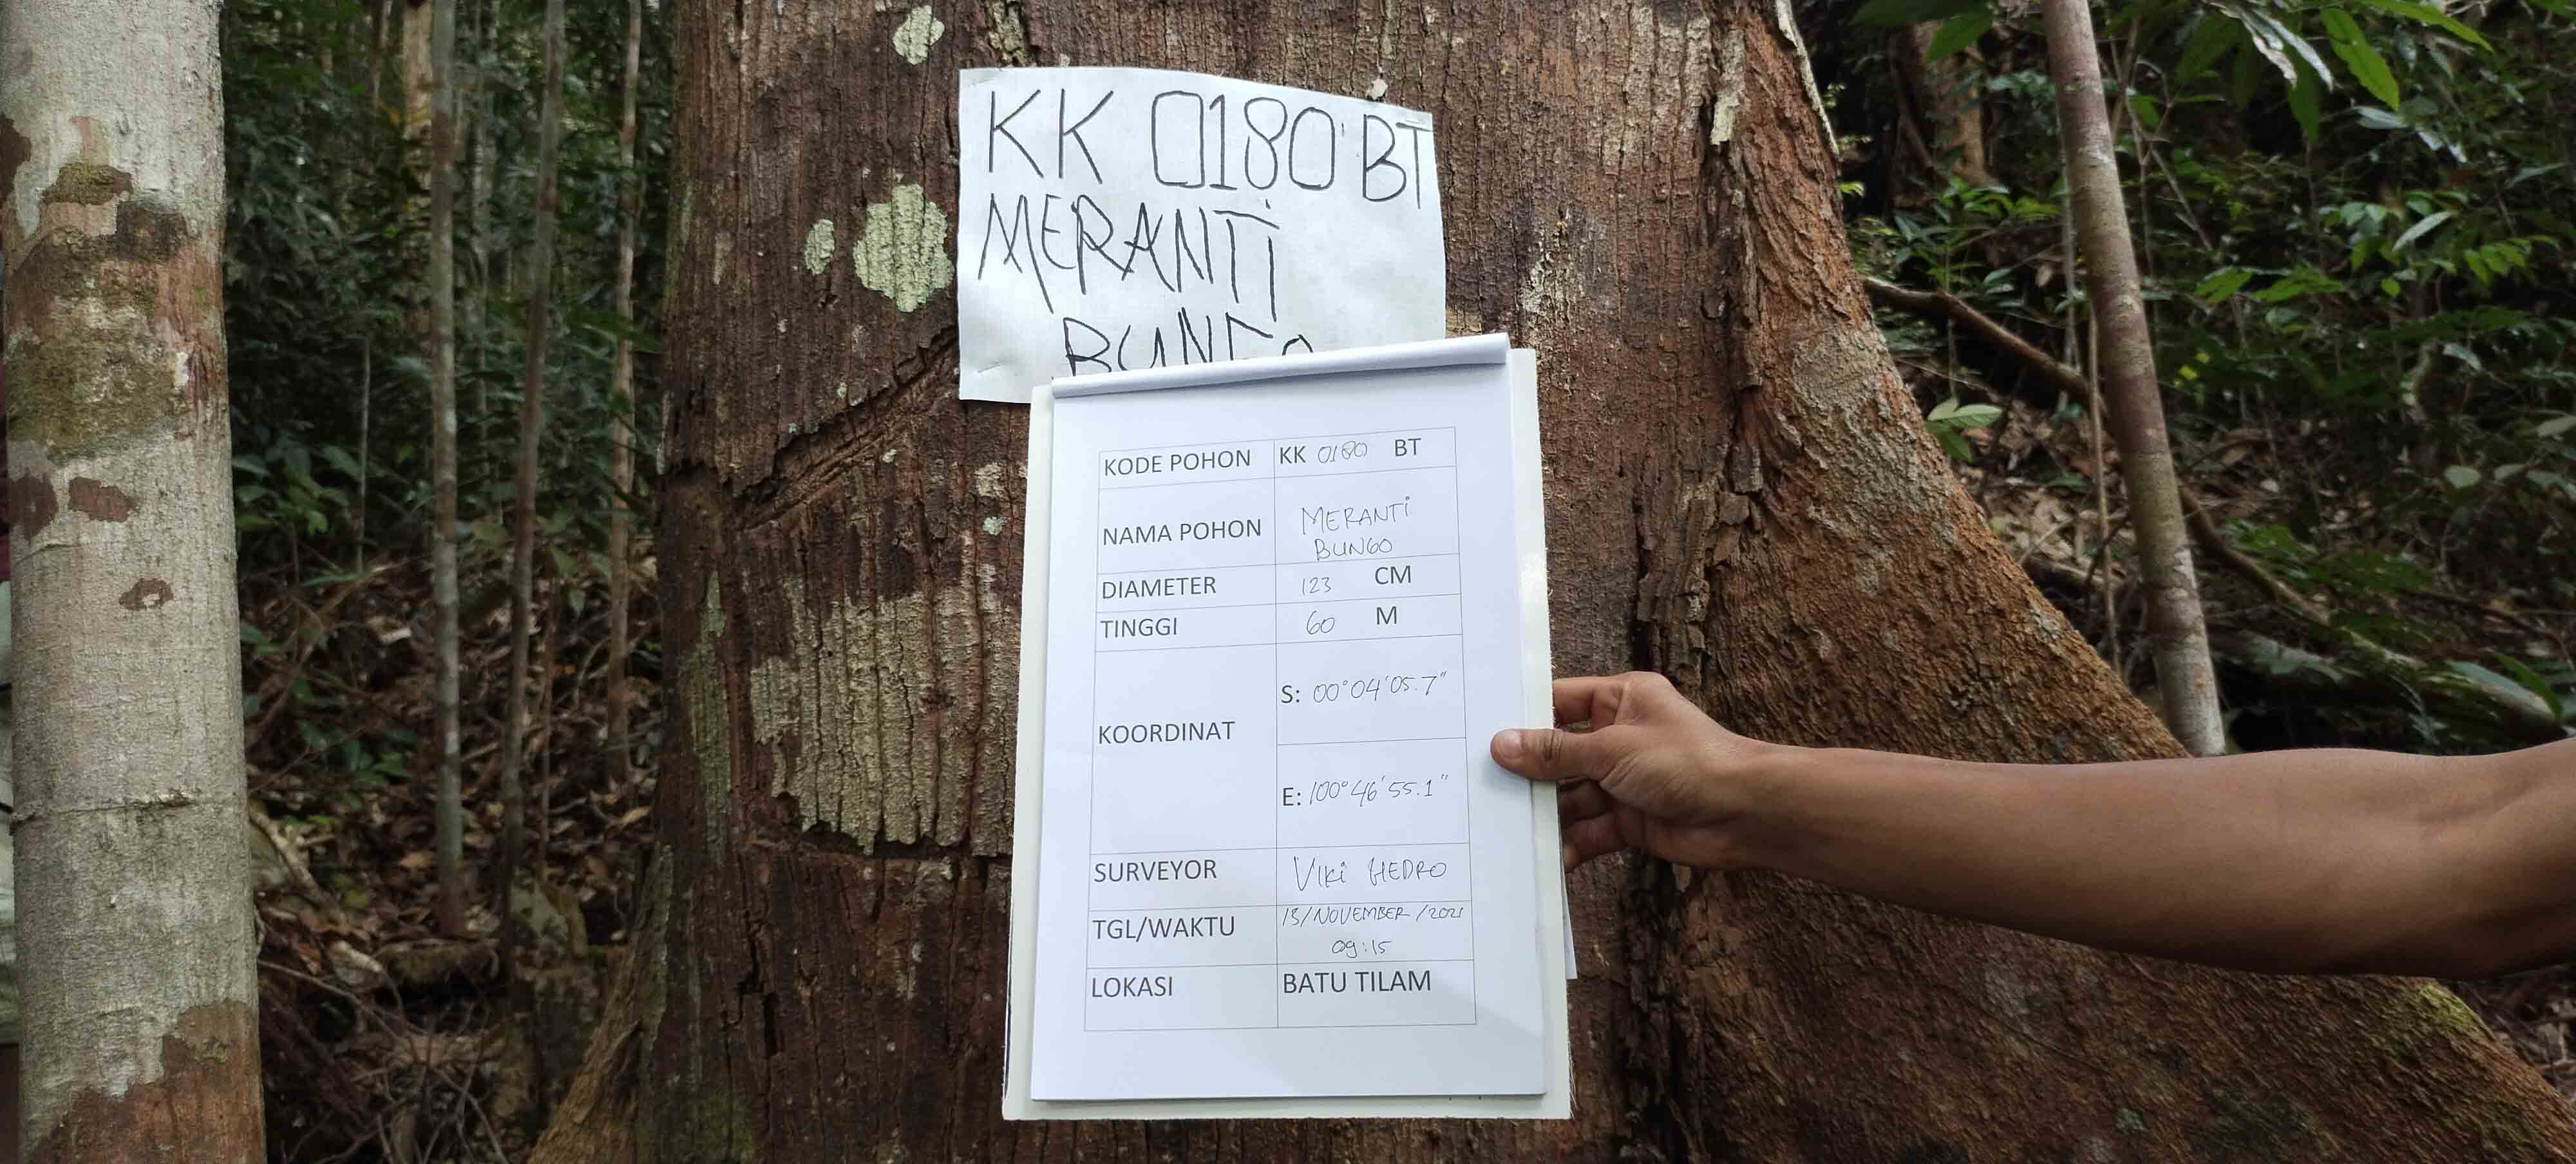 KK 0180 BT
MERANTi
BUNGO
KODE POHON KK 0180 BT
NAMA POHON MERANTi
BUNGO
DIAMETER 123 CM
TINGGI 60 M
KOORDINAT
S: 00°04'05.7"
E: 100°46'55.1"
SURVEYOR ViKi HEDRO
TGL/WAKTU 13/NOVEMBER/2021
09:15
LOKASI BATU TILAM